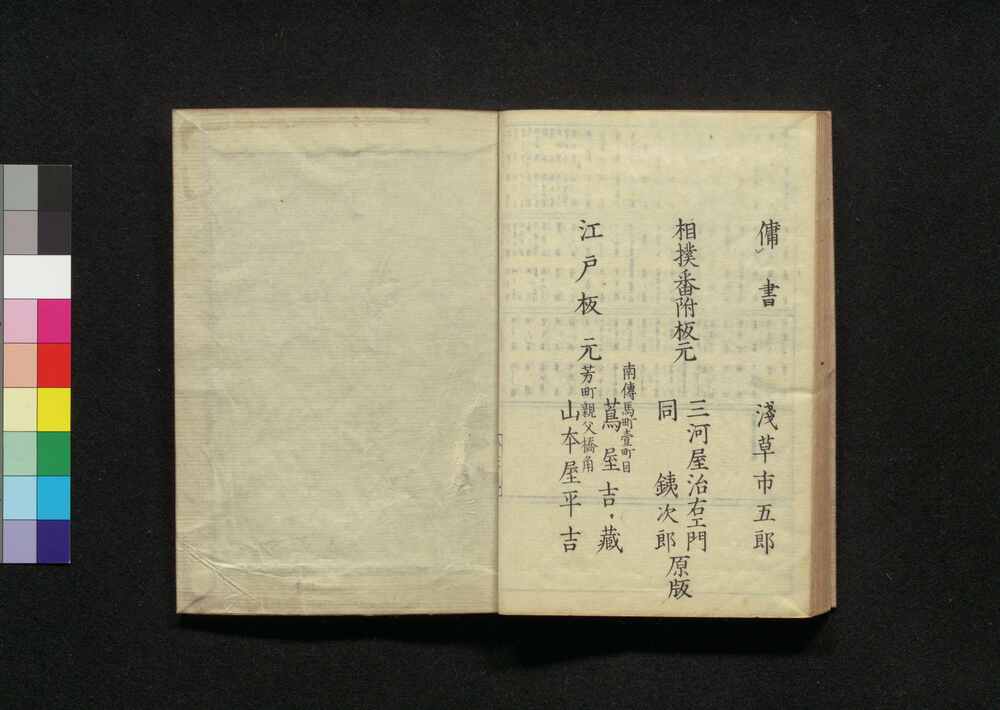 傭書　淺草市五郎
相撲番附板元
三河屋治右エ門
同　銕次郎
原版
江戸板元
南傳馬町壹町目
蔦屋吉藏
芳町親父橋角
山本屋平吉